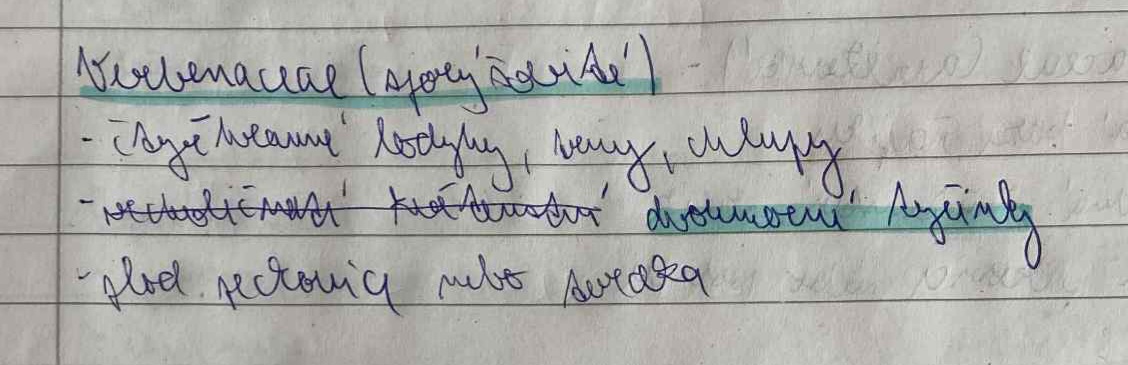 Verbenaceae (sporýšovité)
- čtyřhranné lodyhy, chlupy
- dvoumocné tyčinky
- plod peckovice nebo tvrdka